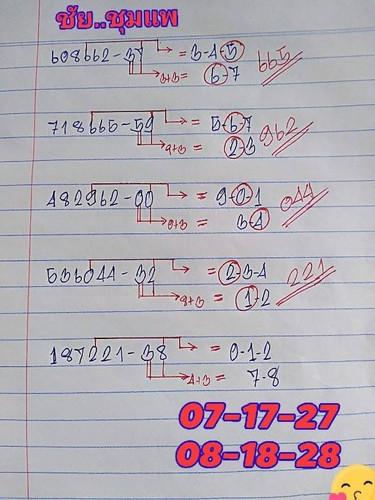 ชัย..ชุมแพ
608662-37 = 3-4-5 665
3+3 = 6-7
718665-59 = 5-6-7 962
9+3 = 2-3
482962-00 = 9-0-1 044
0+3 = 3-4
536044-32 = 2-3-4 221
8+3 = 1-2
187221-38 = 0-1-2
4+3 = 7-8
07-17-27
08-18-28